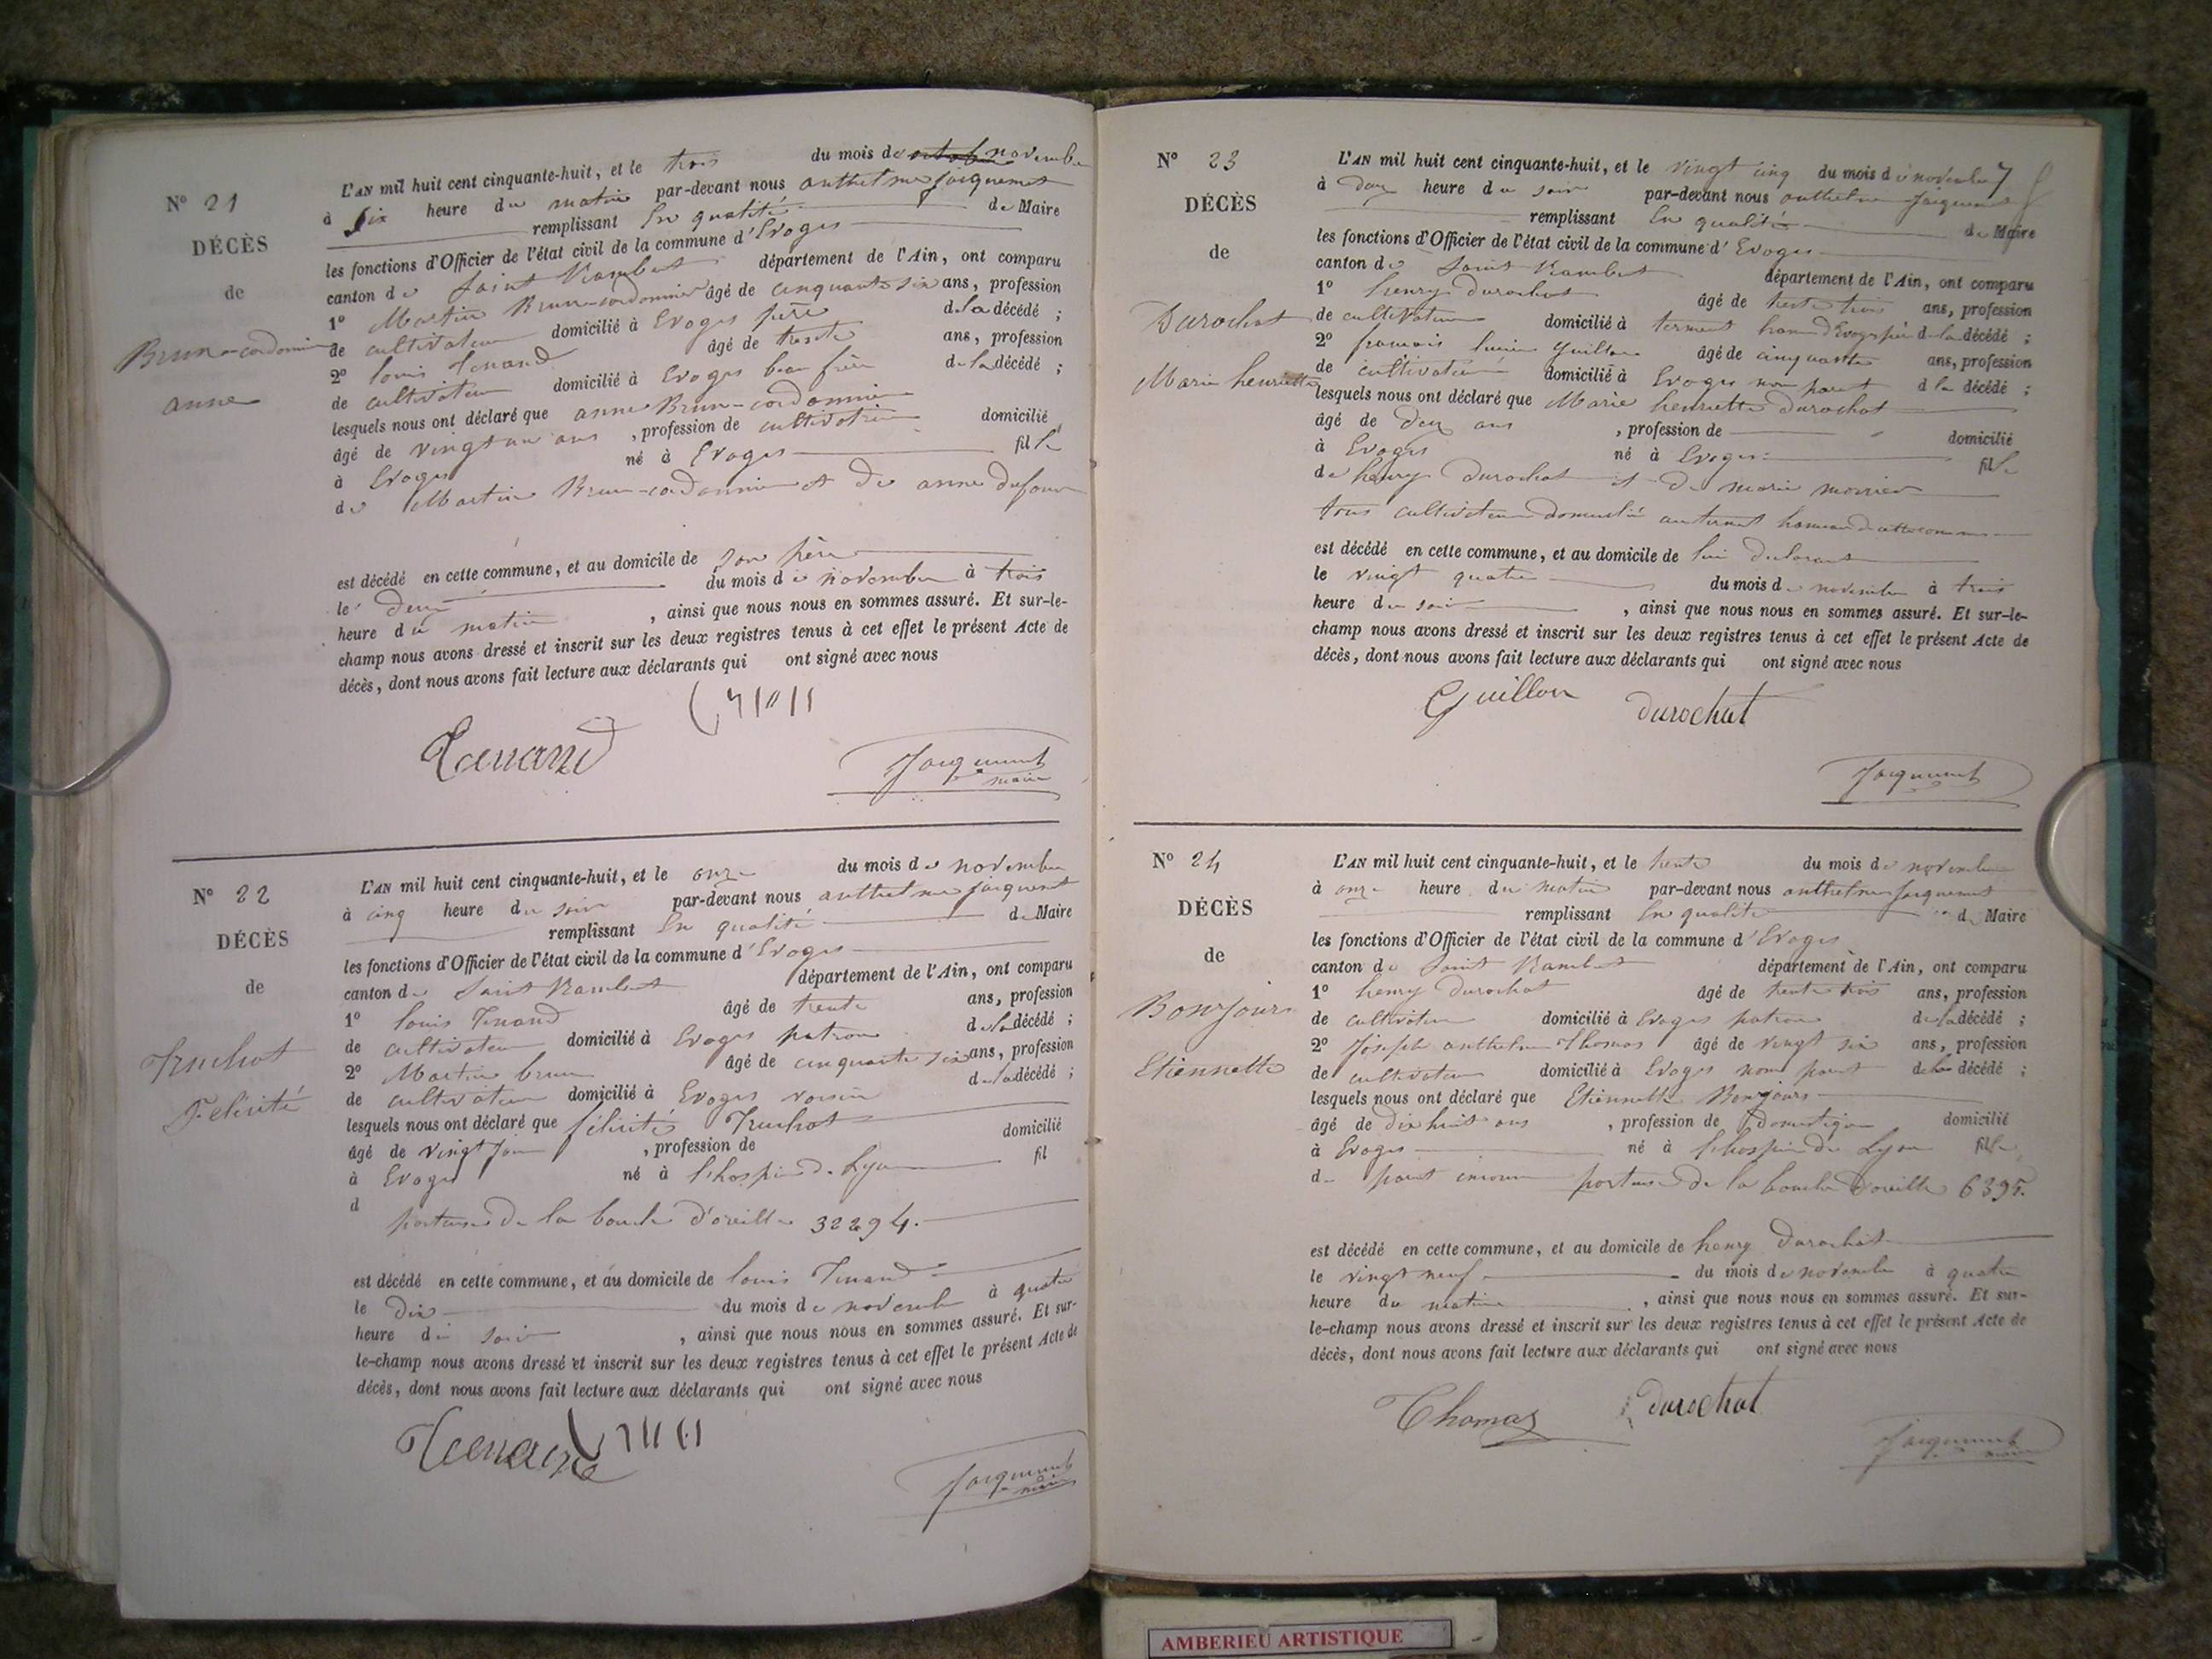 N° 21
DÉCÈS
de
Brun-cordonnier
anne
L'AN mil huit cent cinquante-huit, et le trois du mois de novembre
à Six heure du matin par-devant nous anthelme jacquemet
remplissant En qualité de Maire
les fonctions d'Officier de l'état civil de la commune d'Evoges
canton de Saint Rambert département de l'Ain, ont comparu
1° Martin Brun-cordonnier âgé de cinquante six ans, profession
de cultivateur domicilié à Evoges père de la décédé ;
2° louis Tenand âgé de trente ans, profession
de cultivateur domicilié à Evoges beau frère de la décédé ;
lesquels nous ont déclaré que anne Brun-cordonnier
âgé de vingt un ans , profession de cultivatrice domicilié
à Evoges né à Evoges fille
de Martin Brun-cordonnier et de anne dufour
est décédé en cette commune, et au domicile de son père
le deux du mois de novembre à trois
heure du matin , ainsi que nous nous en sommes assuré. Et sur-le-
champ nous avons dressé et inscrit sur les deux registres tenus à cet effet le présent Acte de
décès, dont nous avons fait lecture aux déclarants qui ont signé avec nous
Tenand
Jacquemet
maire
N° 22
DÉCÈS
de
Truchot
Felicité
L'AN mil huit cent cinquante-huit, et le onze du mois de novembre
à cinq heure du soir par-devant nous anthelme jacquemet
remplissant En qualité de Maire
les fonctions d'Officier de l'état civil de la commune d'Evoges
canton de Saint Rambert département de l'Ain, ont comparu
1° louis Tenand âgé de trente ans, profession
de cultivateur domicilié à Evoges patron de la décédé ;
2° Martin brun âgé de cinquante six ans, profession
de cultivateur domicilié à Evoges voisin de la décédé ;
lesquels nous ont déclaré que félicité Truchot
âgé de vingt jour , profession de domicilié
à Evoges né à l'hospice de Lyon fil
d
porteuse de la boucle d'oreille 32294.
est décédé en cette commune, et au domicile de louis Tenand
le dix du mois de novembre à quatre
heure du soir , ainsi que nous nous en sommes assuré. Et sur-
le-champ nous avons dressé et inscrit sur les deux registres tenus à cet effet le présent Acte de
décès, dont nous avons fait lecture aux déclarants qui ont signé avec nous
Tenand
Jacquemet
maire
N° 23
DÉCÈS
de
Durochat
Marie henriette
L'AN mil huit cent cinquante-huit, et le vingt cinq du mois de novembre
à deux heure du soir par-devant nous anthelme Jacquemet
remplissant En qualité de Maire
les fonctions d'Officier de l'état civil de la commune d'Evoges
canton de Saint Rambert département de l'Ain, ont comparu
1° henry durochat âgé de trente trois ans, profession
de cultivateur domicilié à terment ham d'Evoges père de la décédé ;
2° françois Guillon âgé de cinquante ans, profession
de cultivateur domicilié à Evoges non parent de la décédé ;
lesquels nous ont déclaré que Marie henriette durochat
âgé de deux ans , profession de domicilié
à Evoges né à Evoges fille
de henry durochat et de marie
tous cultivateur domicilié au terment hameau de cette commune
est décédé en cette commune, et au domicile de lui declarant
le vingt quatre du mois de novembre à trois
heure du soir , ainsi que nous nous en sommes assuré. Et sur-le-
champ nous avons dressé et inscrit sur les deux registres tenus à cet effet le présent Acte de
décès, dont nous avons fait lecture aux déclarants qui ont signé avec nous
Guillon durochat
Jacquemet
N° 24
DÉCÈS
de
Bonjours
Etiennette
L'AN mil huit cent cinquante-huit, et le trente du mois de novembre
à onze heure du matin par-devant nous anthelme Jacquemet
remplissant En qualité de Maire
les fonctions d'Officier de l'état civil de la commune d'Evoges
canton de Saint Rambert département de l'Ain, ont comparu
1° henry durochat âgé de trente trois ans, profession
de cultivateur domicilié à Evoges patron de la décédé ;
2° Joseph anthelme Thomas âgé de vingt six ans, profession
de cultivateur domicilié à Evoges non parent de la décédé ;
lesquels nous ont déclaré que Etiennette Bonjours
âgé de dix huit ans , profession de domestique domicilié
à Evoges né à l'hospice de Lyon fille
de parent inconnu porteuse de la boucle d'oreille 6395.
est décédé en cette commune, et au domicile de henry durochat
le vingt neuf du mois de novembre à quatre
heure du matin , ainsi que nous nous en sommes assuré. Et sur-
le-champ nous avons dressé et inscrit sur les deux registres tenus à cet effet le présent Acte de
décès, dont nous avons fait lecture aux déclarants qui ont signé avec nous
Thomas durochat
Jacquemet
maire
AMBERIEU ARTISTIQUE